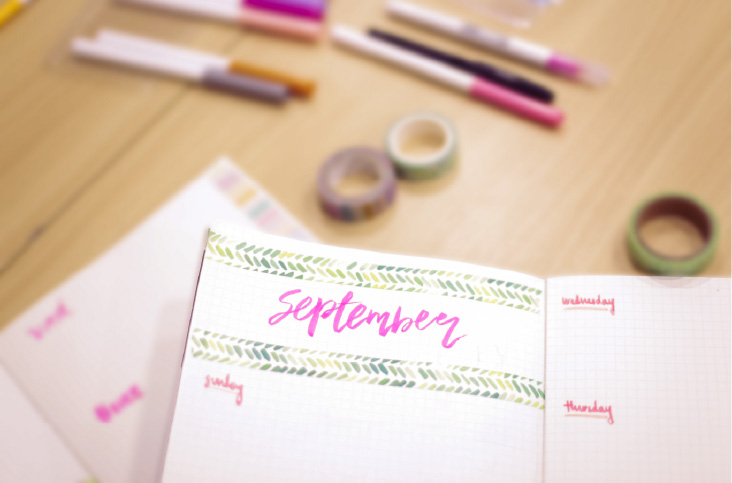 September
sunday
wednesday
thursday